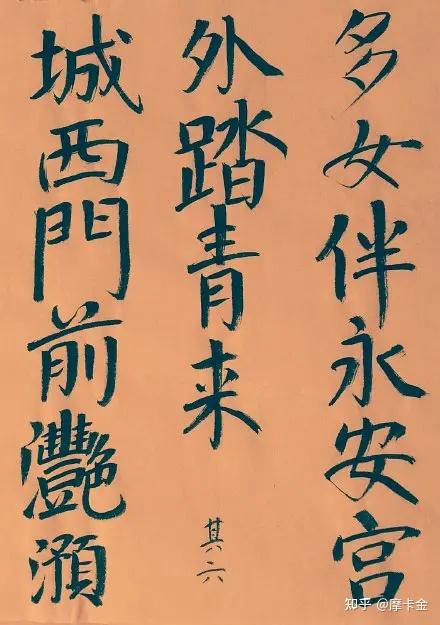 多女伴永安宫
外踏青来
其六
城西門前灧澦
知乎 @摩卡金